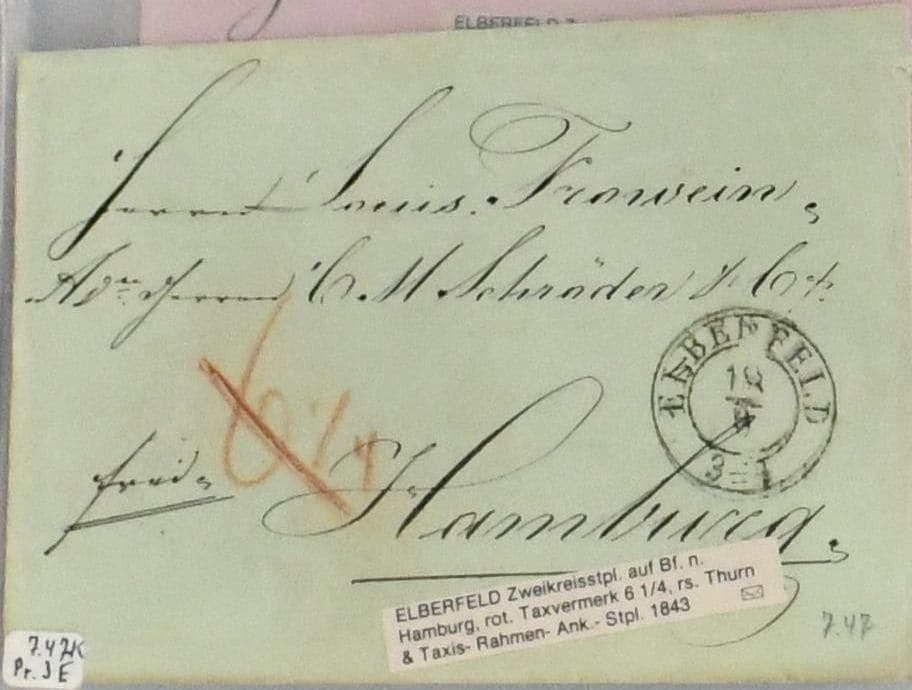 ELBERFELD
Herrn Louis Frowein,
Adr. Herren C. M. Schröder & Co.
ELBERFELD
6 1/4
frei
Hamburg.
ELBERFELD Zweikreisstpl. auf Bf. n.
Hamburg, rot. Taxvermerk 6 1/4, rs. Thurn
& Taxis- Rahmen- Ank.- Stpl. 1843
7.47
7.47K
Pr. J E